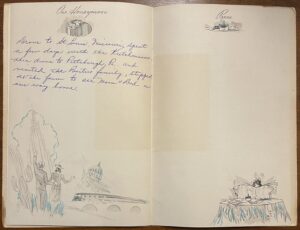 Our Honeymoon
Drove to St. Louis Missouri, spent
a few days with the
then drove to Pittsburgh, Pa. and
visited the family, stopped
at the farm to see Mom & Dad on
our way home.